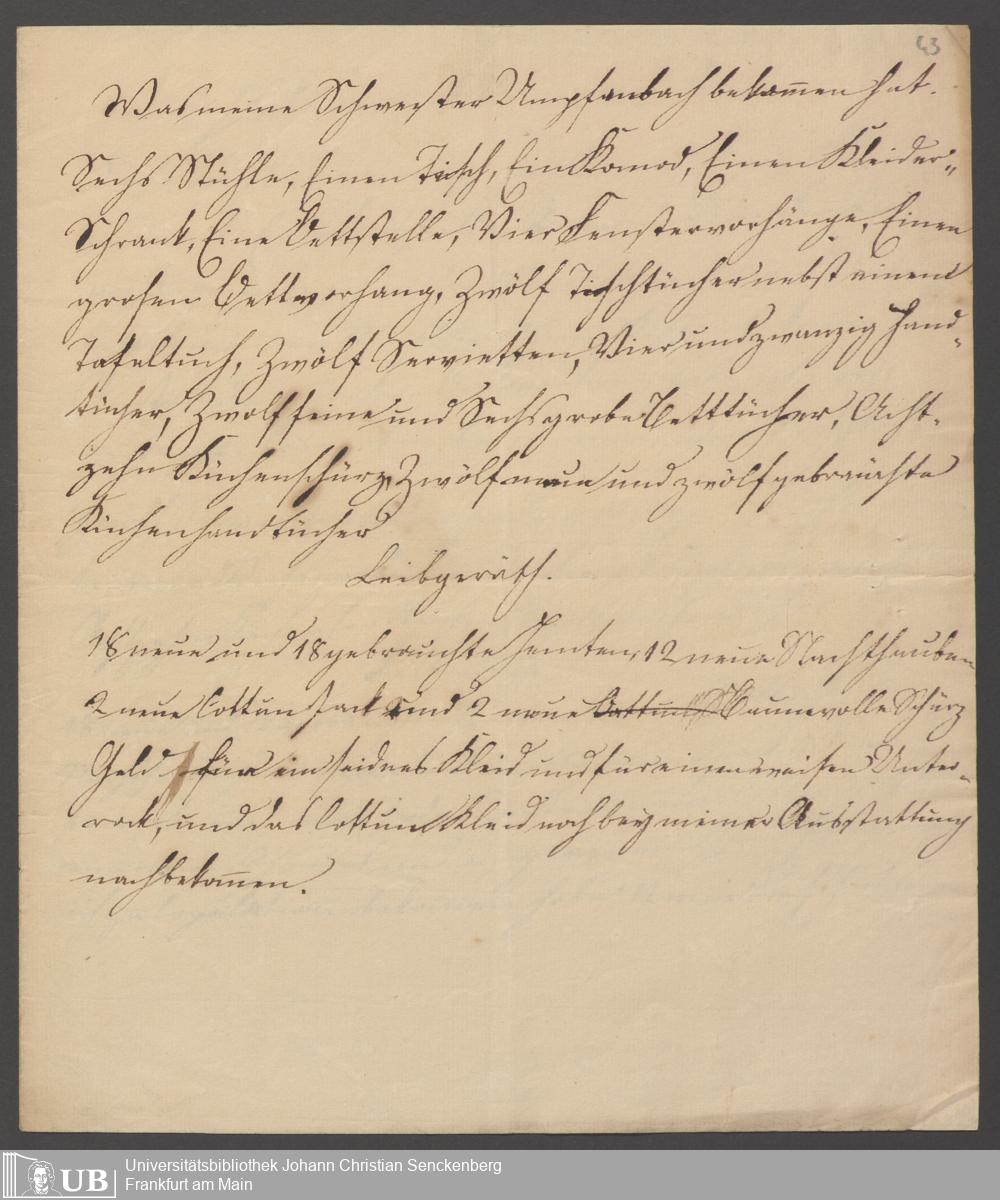 43
Was meine Schwester Umpfenbach bekom̅en hat.
Sechs Stühle, Einen Tisch, Ein Komod, Einen Kleider-
Schrank, Eine Bettstelle, Vier Fenstervorhänge, Einen
grosen Bettvorhang, Zwölf Tischtücher nebst einem
Tafeltuch, Zwölf Servietten, Vier und zwanzig Hand-
tücher, Zwolf feine und Sechs grobe Betttücher, Acht-
zehn Küchenschürz, Zwölf neue und zwölf gebrauchte
Küchenhandtücher
Leibgeräth.
18 neue und 18 gebrauchte Hemten, 12 neue Nachthauben
2 neue Cottun sack und 2 neue Cottun Baumvolle Schürz
Geld für ein seidnes Kleid und für einen weisen Unter-
rock, und das Cottun Kleid noch bey meiner Ausstattung
nachbekom̅en.
UB
Universitätsbibliothek Johann Christian Senckenberg
Frankfurt am Main